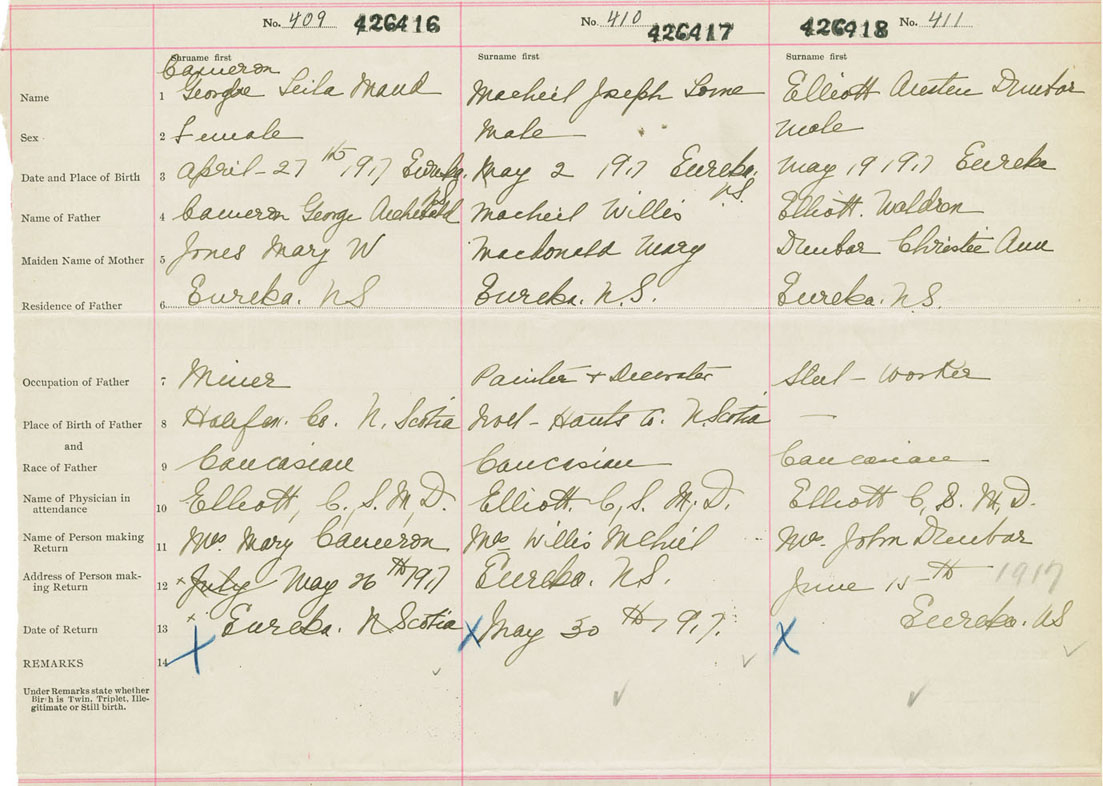 No. 409 426416 No. 410 426417 426418 No. 411
Surname first Surname first Surname first
Cameron
Name 1 George Leila Maud Macneil Joseph Lorne Elliott Austen Dunbar
Sex 2 Female Male Male
Date and Place of Birth 3 April - 27th 1917 Eureka. NS May 2 1917 Eureka. N.S. May 19 1917 Eureka
Name of Father 4 Cameron George Archibald Macneil Willis Elliott. Waldron
Maiden Name of Mother 5 Jones Mary W Macdonald Mary Dunbar Christie Ann
Residence of Father 6 Eureka. NS Eureka. N.S. Eureka. N.S.
Occupation of Father 7 Miner Painter + Decorater Steel - Worker
Place of Birth of Father 8 Halifax. Co. N. Scotia Noel - Hants Co. N.Scotia —
and
Race of Father 9 Caucasian Caucasian Caucasian
Name of Physician in
attendance 10 Elliott, C. S. M. D. Elliott. C, S. M. D. Elliott C, S. M, D.
Name of Person making
Return 11 Mrs. Mary Cameron Mrs Willis McNeil Mrs. John Dunbar
Address of Person mak-
ing Return 12 x July May 26th 1917 Eureka. NS. June 15th 1917
Date of Return 13 x Eureka. N Scotia May 30th 1917. Eureka. NS
REMARKS 14
Under Remarks state whether
Birth is Twin, Triplet, Ille-
gitimate or Still birth.